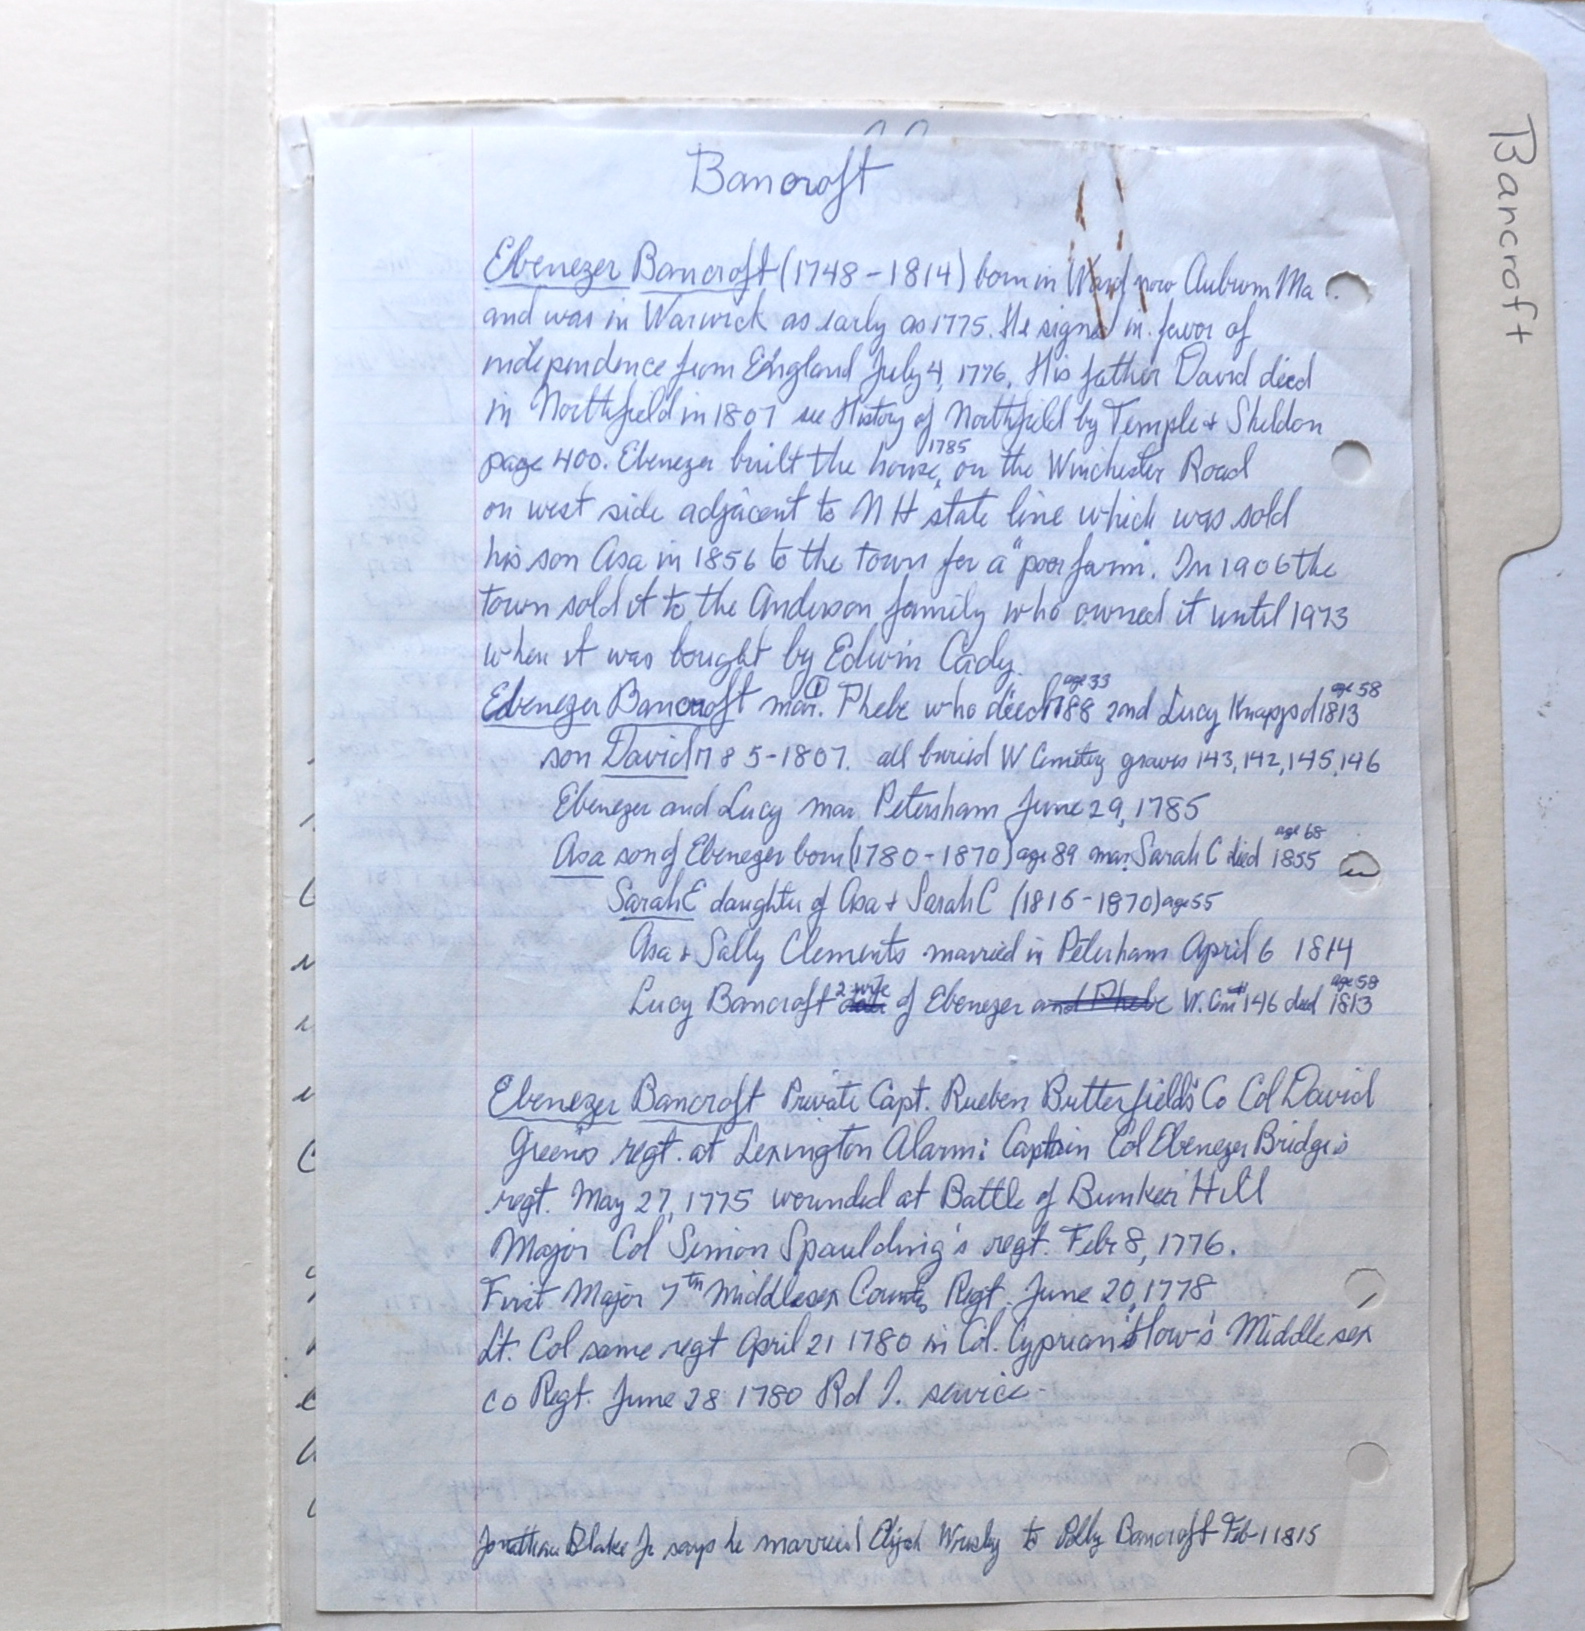 Bancroft
Bancroft
Ebenezer Bancroft (1748-1814) born in Ward now Auburn Ma.
and was in Warwick as early as 1775. He signed in favor of
independence from England July 4, 1776. His father David died
in Northfield in 1807 see History of Northfield by Temple + Sheldon
page 400. Ebenezer built the house 1785 on the Winchester Road
on west side adjacent to NH state line which was sold
his son Asa in 1856 to the town for a "poor farm". In 1906 the
town sold it to the Anderson family who owned it until 1973
when it was bought by Edwin Cady.
Ebenezer Bancroft mar. ① Phebe who died 1788 age 33 2nd Lucy Knapp d 1813 age 58
son David 1785-1807. all buried W Cemetery graves 143, 142, 145, 146
Ebenezer and Lucy mar Petersham June 29, 1785
Asa son of Ebenezer born (1780-1870) age 89 mar. Sarah C died 1855 age 68
Sarah E daughter of Asa + Sarah C (1815-1870) age 55
Asa + Sally Clements married in Petersham April 6 1814
Lucy Bancroft 2 wife of Ebenezer and Phebe W. Cem # 146 died 1813 age 58
Ebenezer Bancroft Private Capt. Rueben Butterfield's Co Col David
Green's regt. at Lexington Alarm: Captain Col Ebenezer Bridge's
regt. May 27, 1775 wounded at Battle of Bunker Hill
Major Col Simon Spaulding's regt. Feb 8, 1776.
First Major 7th Middlesex County Regt. June 20, 1778
Lt. Col same regt April 21 1780 in Col. Cyprian How's Middlesex
co Regt. June 28 1780 Rd I. service-
Jonathan Blake Jr says he married Elijah to Polly Bancroft Feb 1 1815